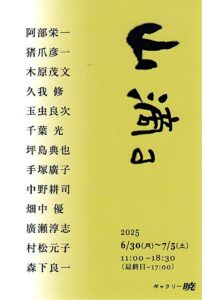 山滴る
阿部栄一
猪爪彦一
木原茂文
久我 修
玉虫良次
千葉 光
坪島典也
手塚廣子
中野耕司
畑中 優
廣瀬淳志
村松元子
森下良一
2025
6/30(月)~7/5(土)
11:00~18:30
(最終日~17:00)
ギャラリー 暁